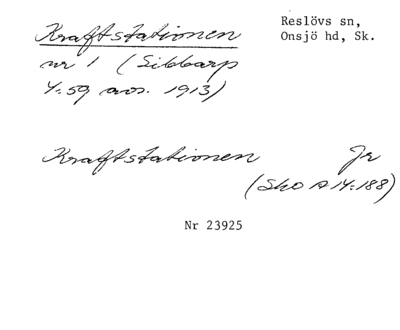 Kraftstationen
Reslövs sn,
Onsjö hd, Sk.
nr 1 (Sibbarp
4:59 avs. 1913)
Kraftstationen Jr
(Sko A 14:188)
Nr 23925